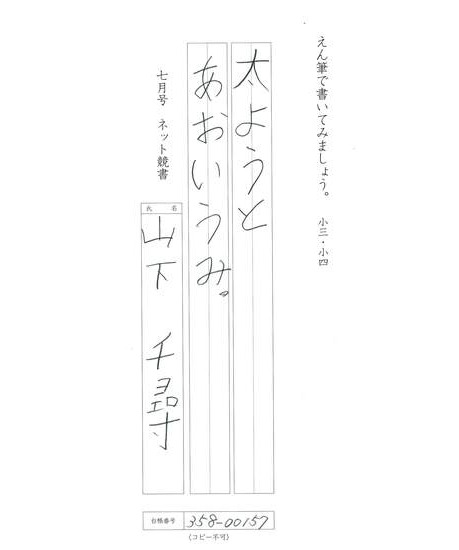 えん筆で書いてみましょう。 小三・小四
太ようと
あおいうみ。
七月号 ネット競書
氏名
山下 千尋
台帳番号 358-00157
(コピー不可)